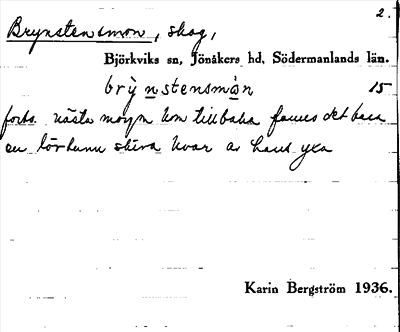 2.
Brynstensmon, skog,
Björkviks sn, Jönåkers hd, Södermanlands län.
brỳnstensmån 15
forts. nästa morgn kom tillbaka fanns det bara
en lövtunn skiva kvar av hans yxa
Karin Bergström 1936.